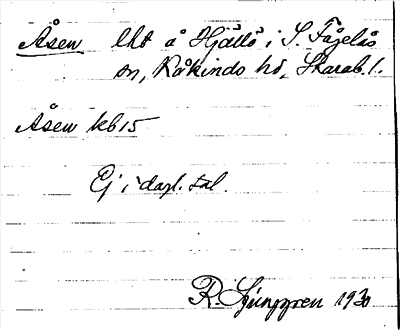 Åsen lht å Hjällö i S. Fågelås
sn, Kåkinds hd, Skarab. l.
Åsen kb 15
Ej i dagl. tal.
R. Ljunggren 1930